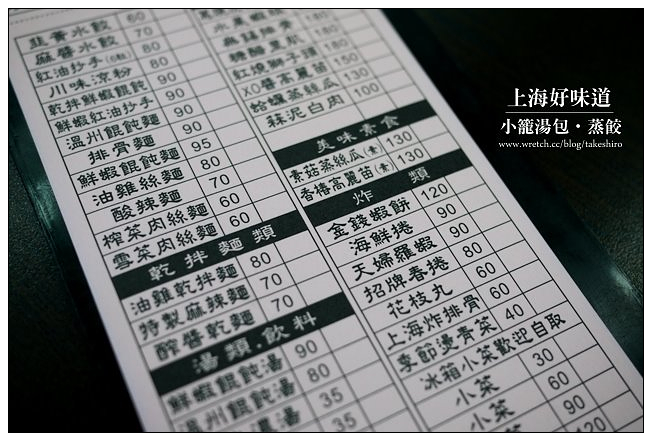 韭黃水餃 60
麻醬水餃 70
紅油抄手(6粒) 80
川味涼粉 60
乾拌鮮蝦餛飩 90
鮮蝦紅油抄手 90
溫州餛飩麵 90
排骨麵 90
鮮蝦餛飩麵 95
油雞絲麵 80
酸辣麵 70
榨菜肉絲麵 60
雪菜肉絲麵 60
乾拌麵類
油雞乾拌麵 80
特製麻辣麵 70
醡醬乾麵 70
湯類.飲料
鮮蝦餛飩湯 90
溫州餛飩湯 80
35
35
糖醋里肌 180
紅燒獅子頭 180
XO醬高麗苗 150
蛤蠣蒸絲瓜 130
蒜泥白肉 100
美味素食
素菇蒸絲瓜(素) 130
香椿高麗苗(素) 130
炸類
金錢蝦餅 120
海鮮捲 90
天婦羅蝦 90
招牌春捲 80
花枝丸 60
上海炸排骨 60
季節燙青菜 40
冰箱小菜歡迎自取
小菜 30
小菜 60
小菜 90
120
上海好味道
小籠湯包・蒸餃
www.wretch.cc/blog/takeshiro